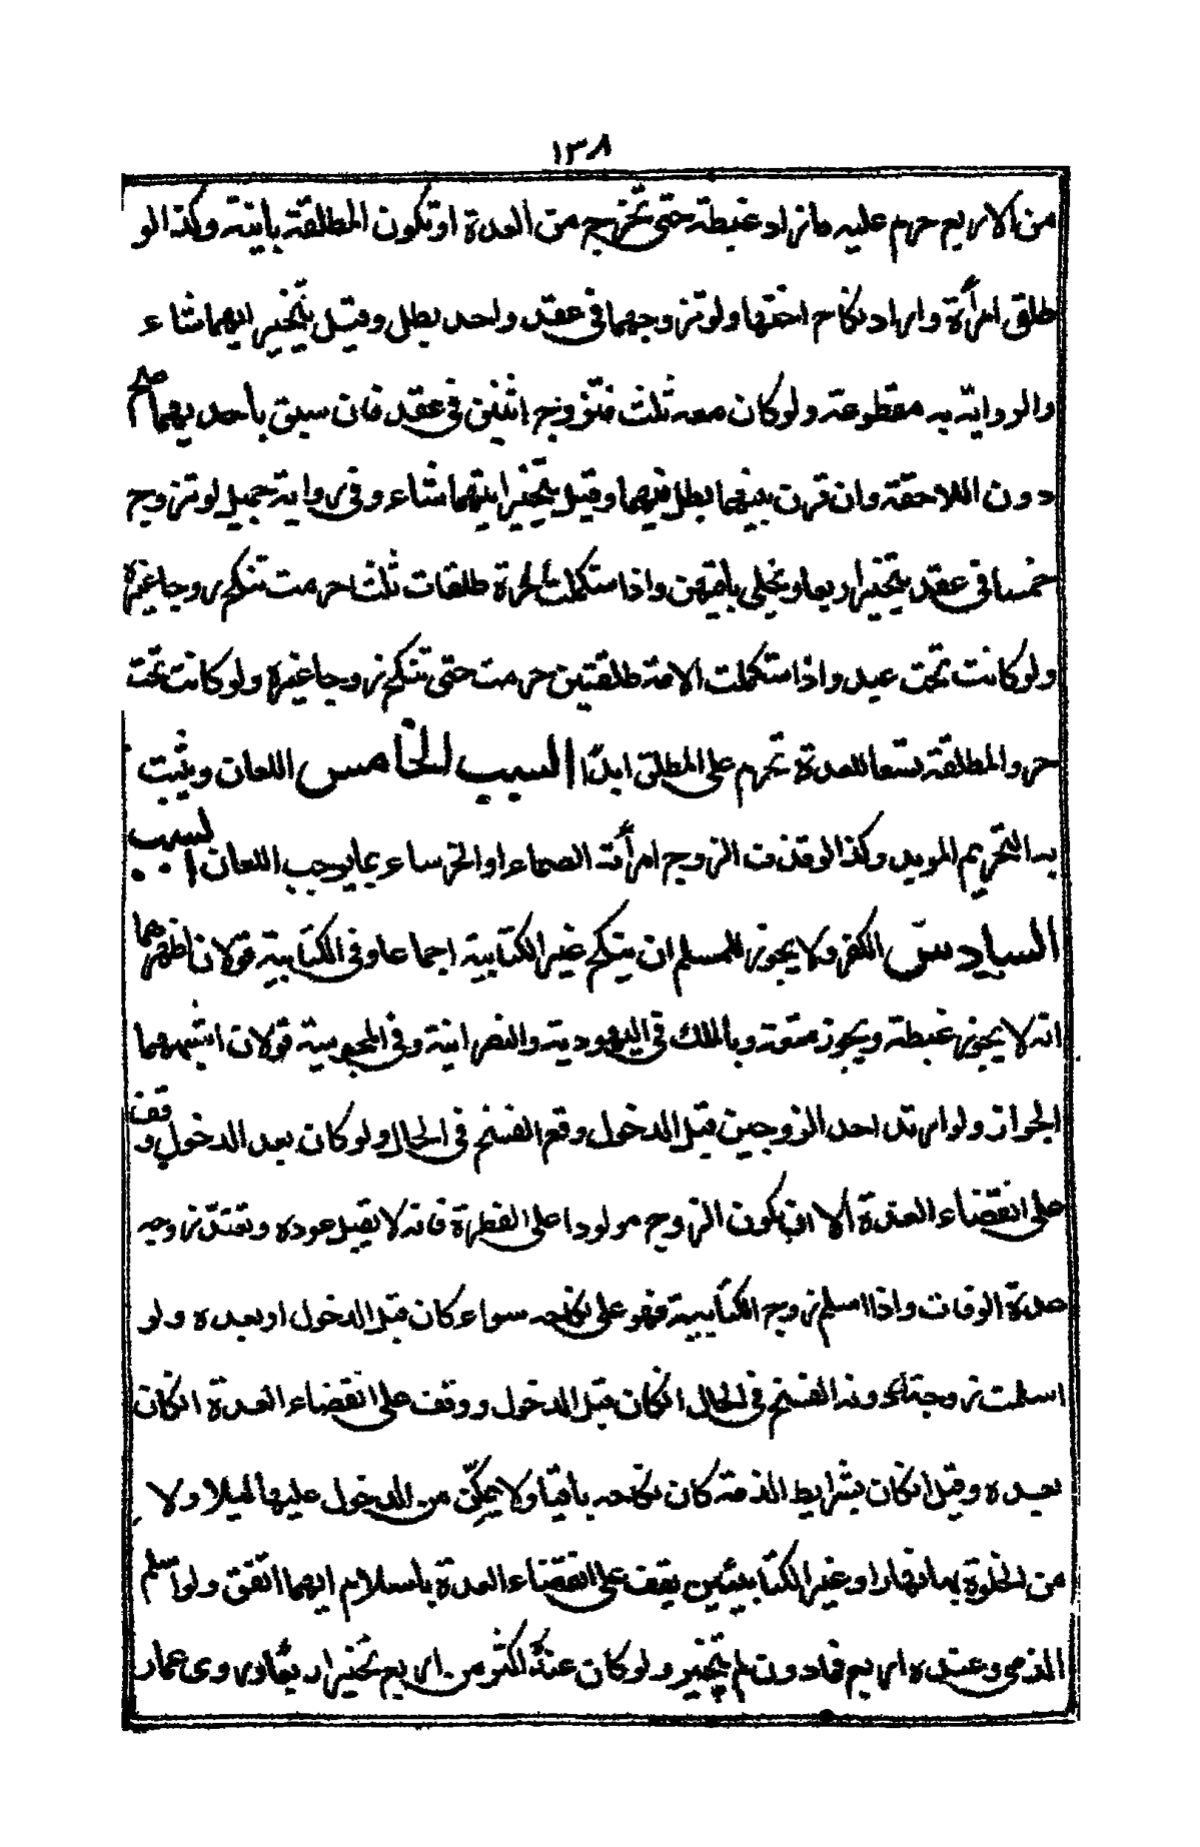 ١٣٨
من الاربع حرم عليه مازاد غبطة حتى تخرج من العدة او تكون المطلقة باينة وكذا لو
طلق امرأة واراد نكاح اختها ولو تزوجهما فى عقد واحد بطل وقيل يتخير ايهما شاء
والرواية به مقطوعة ولو كان معه ثلث فتزوج اثنين فى عقد فان سبق باحديهما صح
دون اللاحقة وان قرن بينهما بطل فيهما وقيل يتخير ايتهما شاء وفى رواية جميل لو تزوج
خمسا فى عقد يتخير اربعا ويخلى باقيهن واذا ستكملت الحرة طلقات ثلث احرمت تنكح زوجا غيره
ولو كانت تحت عبد واذا ستكملت الامة طلقتين حرمت حتى تنكح زوجا غيره ولو كانت تحت
حر والمطلقة تسعا للعدة تحرم على المطلق ابدًا السبب الخامس اللعان ويثبت
به التحريم المويد وكذا لو قذفت الزوج امرأته الصماء او الخرساء بما يوجب اللعان السبب
السادس الكفر ولا يجوز للمسلم ان ينكح غير الكتابية اجماعا وفى الكتابية قولان اظهرهما
انه لا يجوز غبطة ويجوز متعة وبالملك فى اليهودية والنصرانية وفى المجوسية قولان اشبههما
الجواز ولو ارتد احد الزوجين قبل الدخول وقع الفسخ فى الحال ولو كان بعد الدخول وقف
على انقضاء العدة الا ان يكون الزوج مولودا على الفطرة فانه لا يقبل عوده وتعتدّ زوجه
عدة الوفات واذا اسلم زوج الكتابية فهو على نكاحه سواء كان قبل الدخول او بعده ولو
اسلمت زوجته دونه الفسخ فى الحال انكان قبل الدخول ووقف على انقضاء العدة انكان
بعده وقيل انكان بشرايط الذمة كان نكاحه باقيا ولا يمكّن من الدخول عليها ليلا ولا
من الخلوة بها نهارا وغير الكتابيين يقف على انقضاء العدة باسلام ايهما اتفق ولو اسلم
الذمى وعنده اربع فما دون لم يتخير ولو كان عنده اكثر من اربع تخير اربعًا وروى عمار